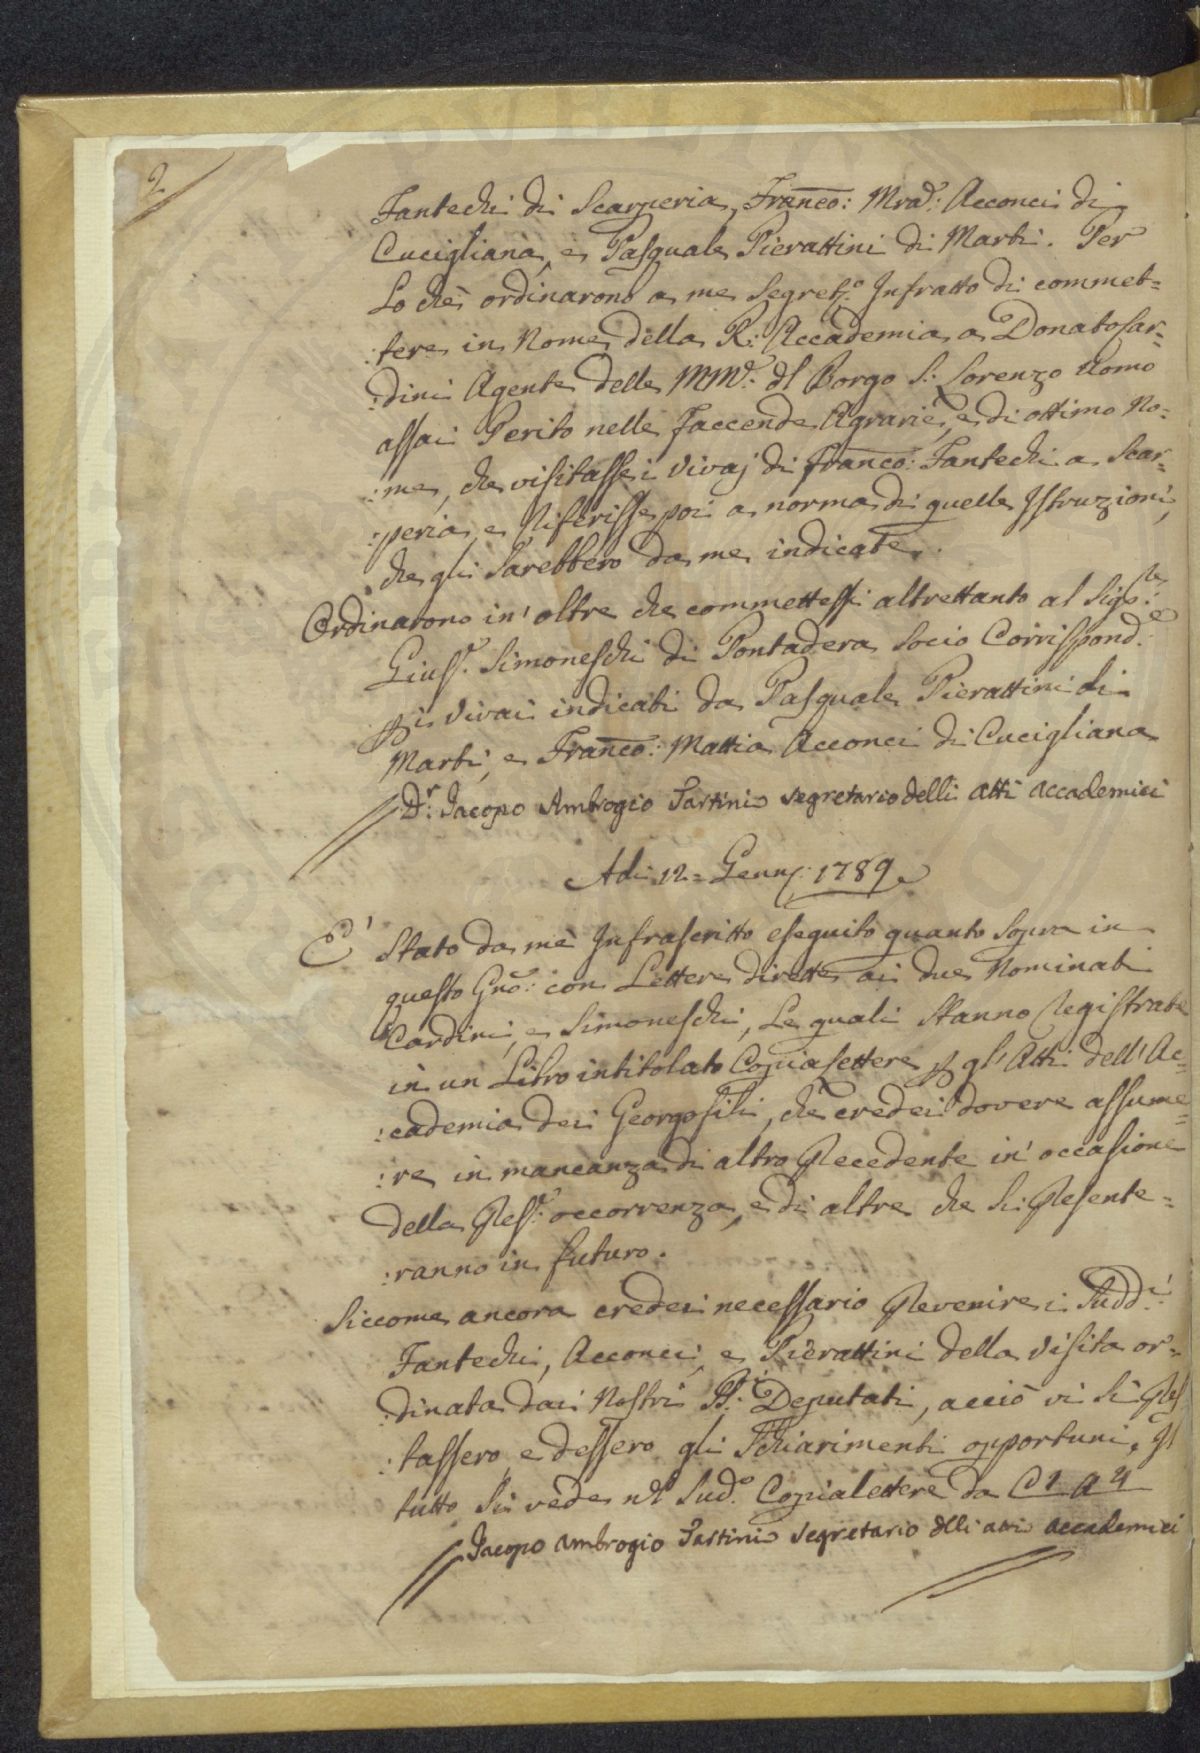 2
Fantechi di Scarperia, Franco: Mraᵈ: Acconci di
Cucigliana, e Pasquale Pierattini di Marti. Per
Lo chè ordinarono a me Segretº Infratto di commet=
:tere in Nome della R: Accademia a Donato Car=
:dini Agente delle MMᵉ: dl Borgo S: Lorenzo Uomo
assai Perito nelle faccende Agrarie, e di ottimo No=
:me, che visitasse i Vivaj di Franco: Fantechi a Scar=
:peria, e Riferisse poi a norma di quelle Istruzioni,
che gli Sarebbero da me indicate.
Ordinarono in' oltre che commettessi altrettanto al Sigʳᵉ:
Giusᵉ: Simoneschi di Pontadera Socio Corrispondᵉ:
i Vivai indicati da Pasquale Pierattini di
Marti, e Franco: Mattia Acconci di Cucigliana
Dʳ: Jacopo Ambrogio Tartini segretario delli atti accademici
Adi 12= Gennº: 1789
E' Stato da mè Infrascritto eseguito quanto Sopra in
questo Gnõ: con Lettere dirette ai due Nominati
Cardini, e Simoneschi, Le quali Stanno Registrate
in un' Libro intitolato Copialettere gl' Atti dell' Ac=
:cademia dei Georgofili, che credei dovere assume=
:re in mancanza di altro Precedente in' occasione
della Presᵉ: occorrenza, e di altre che Si Presente=
:ranno in futuro.
Siccome ancora credei necessario Prevenire i Suddⁱ:
Fantechi, Acconci, e Pierattini della Visita or=
:dinata dai Nostri SSⁱ: Deputati, acciò vi Si Pres
:tassero, e dessero gli Schiarimenti opportuni,
tutto Si vede nel Sudº Copialettere da C 1 a 4
Jacopo Ambrogio Tartini segretario dlli atti accademici